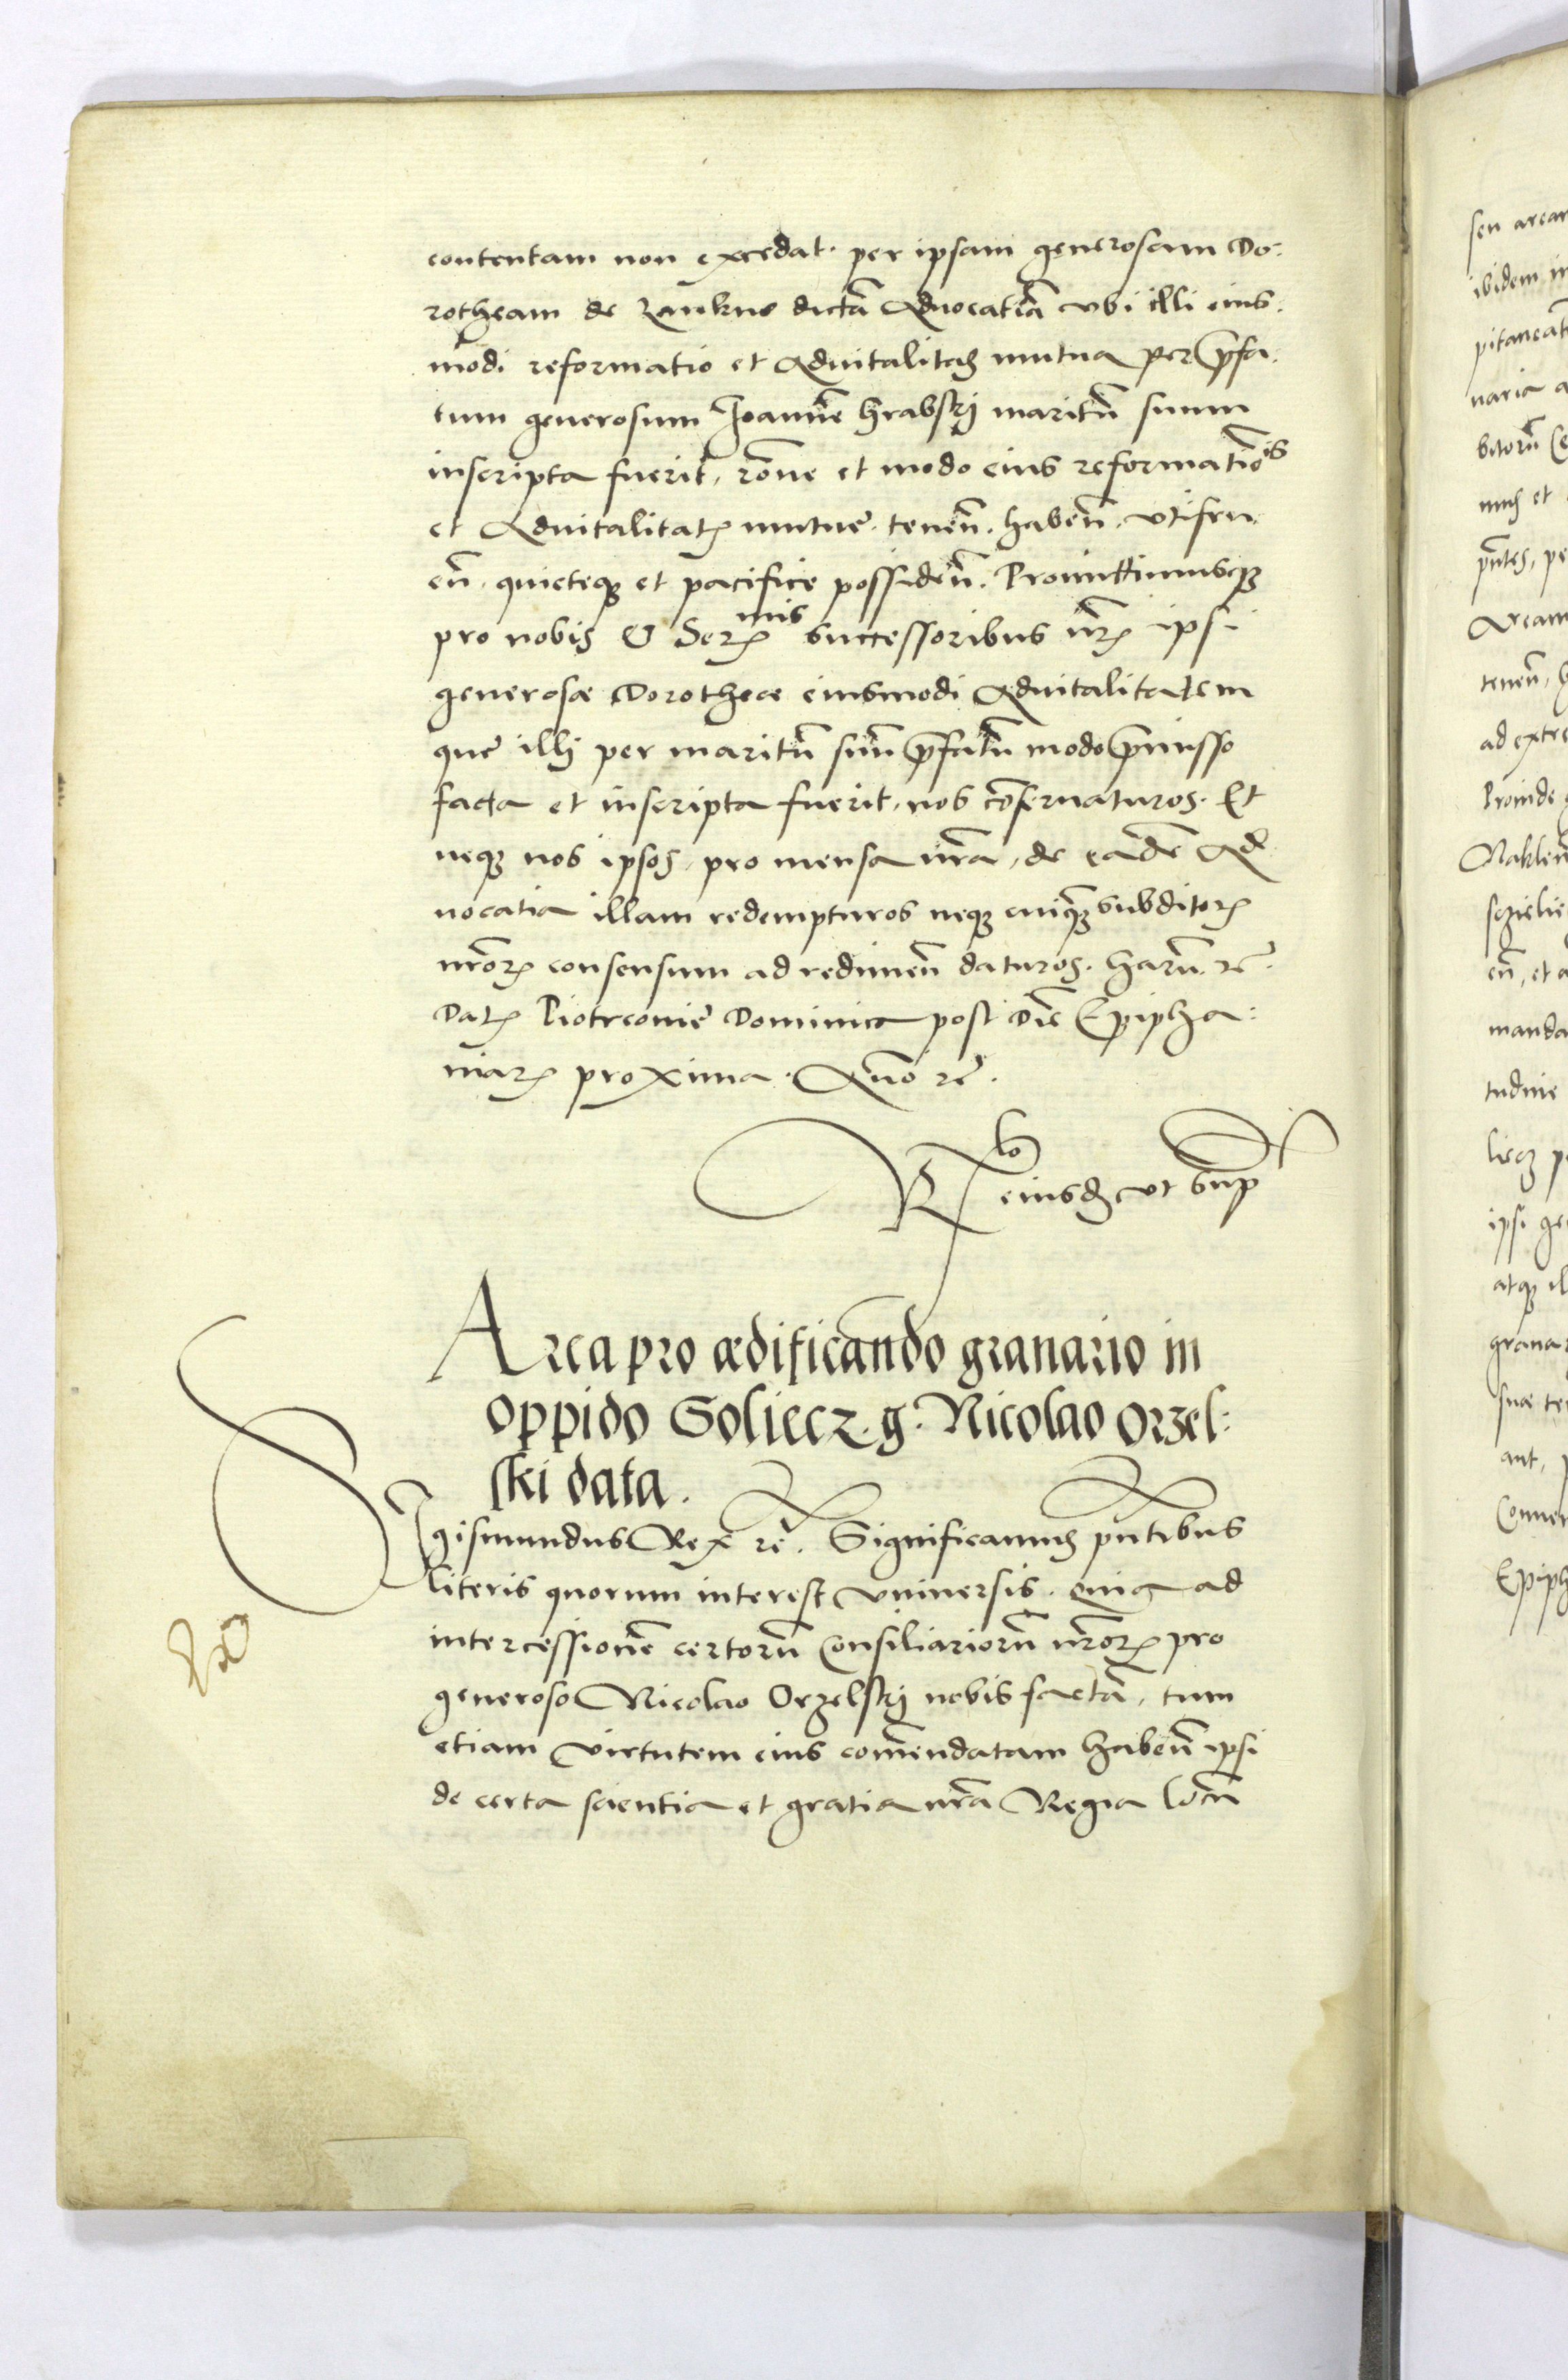 contentam non excedat. per ipsam generosam Do:
rotheam de Lankno dictā Aduocatiā vbi illi eius:
modi reformatio et Aduitalitas mutua per p̄fa:
tum generosum Joannē Hrabskj maritū suum
inscripta fuerit, rōne et modo eius reformatiōis
et Aduitalitatꝭ mutue. tenēn. habēn. vtifru
eñ. quieteqꝫ et pacifice possidēn. Promittimusqꝫ
pro nobis & Serꝫmis successoribus nrīs ipsi
generosæ Dorotheæ eiusmodi Aduitalitatem
que illj per maritū suū p̄fatū modo p̄misso
facta et inscripta fuerit, nos cōseruaturos. Et
neqꝫ nos ipsos, pro mensa nr̄a, de eadē Ad
uocatia illam redempturos neqꝫ cuiqꝫ subditoꝝ
nr̄oꝝ consensum ad redimeñ daturos. Harū. rē.
Datꝭ Piotrconie Dominica post diē Epipha:
niaꝝ proxima. Anō rē.
Rlō eiusdꝫ vt supͣ
Area pro ædificando granario in
oppido Soliecz. g. Nicolao Orzel:
ski data.
Sigismundus Rex rē. Significamus pn̄tibus
literis quorum interest vniuersis. quia ad
intercessionē certorū Consiliariorū nr̄oꝝ pro
generoso Nicolao Orzelskj nobis factā, tum
etiam virtutem eius comēndatam habeñ ipsi
de certa scientia et gratia nr̄a Regia locū
sen arear
ibidem in
pitaneatꝰ
naria a
bitorū
nus et
pn̄tes, pe
Aream
teneñ, h
ad extre
Proinde
Naklen
eñ, et a
manda
tudine
ipsi ge
atqꝫ il
granar
suæ te
ant,
Conuen
Epiph